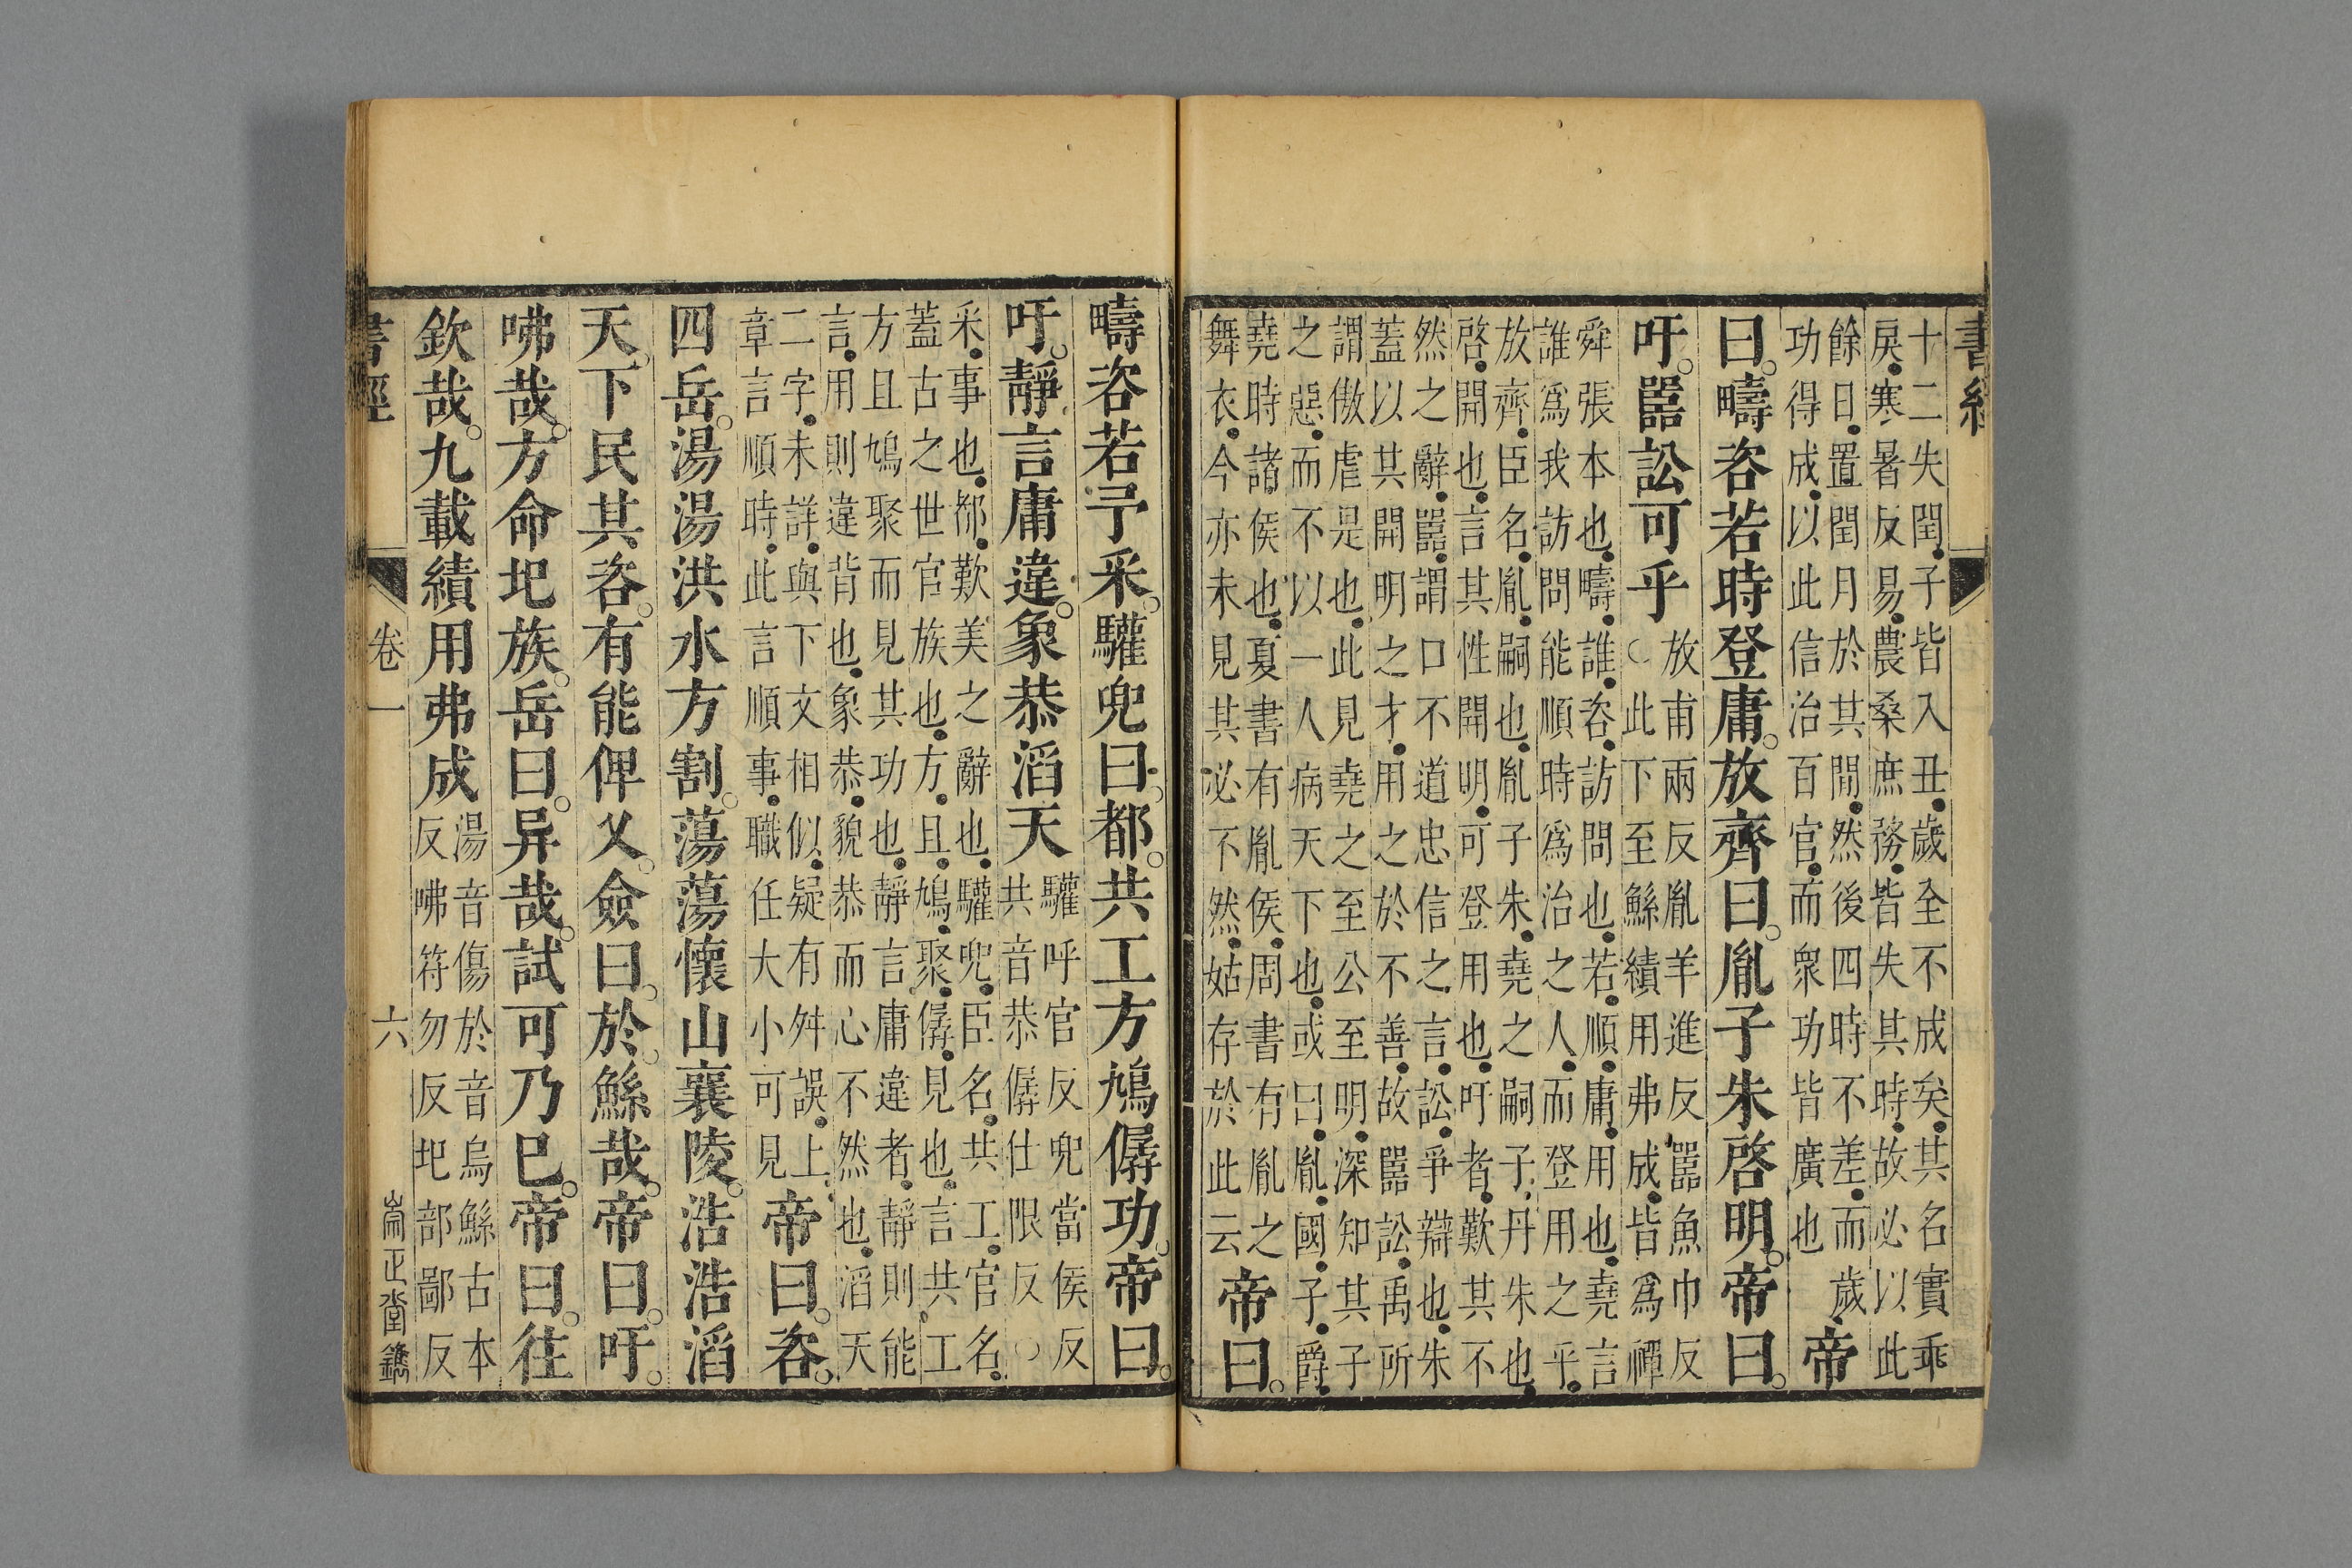 書經
十二失閏子皆入丑歲全不成矣其名實乖
戾寒暑反易農桑庶務皆失其時故必以此
餘日置閏月於其閒然後四時不差而歲
功得成以此信治百官而衆功皆廣也
帝
曰。疇咨若時登庸。放齊曰。胤子朱啓明。帝曰。
吁。嚚訟可乎
放甫兩反胤羊進反嚚魚巾反
○此下至鯀績用弗成皆爲禪
舜張本也疇誰咨訪問也若順庸用也堯言
誰爲我訪問能順時爲治之人而登用之乎
放齊臣名胤嗣也胤子朱堯之嗣子丹朱也
啓開也言其性開明可登用也吁者歎其不
然之辭嚚謂口不道忠信之言訟爭辯也朱
蓋以其開明之才用之於不善故嚚訟禹所
謂傲虐是也此見堯之至公至明深知其子
之惡而不以一人病天下也或曰胤國子爵
堯時諸侯也夏書有胤侯周書有胤之
舞衣今亦未見其必不然姑存於此云
帝曰。
疇咨若予采。驩兜曰。都。共工方鳩僝功。帝曰。
吁。靜言庸違。象恭滔天
驩呼官反兜當侯反
共音恭僝仕限反○
采事也都歎美之辭也驩兜臣名共工官名
蓋古之世官族也方且鳩聚僝見也言共工
方且鳩聚而見其功也靜言庸違者靜則能
言用則違背也象恭貌恭而心不然也滔天
二字未詳與下文相似疑有舛誤上
章言順時此言順事職任大小可見
帝曰。咨。
四岳。湯湯洪水方割。蕩蕩懷山襄陵。浩浩滔
天。下民其咨。有能俾乂。僉曰。於。鯀哉。帝曰。吁。
咈哉。方命圮族。岳曰。异哉。試可乃已。帝曰。往
欽哉。九載績用弗成
湯音傷於音烏鯀古本
反咈符勿反圮部鄙反
書經
卷一
六
崇正堂鐫